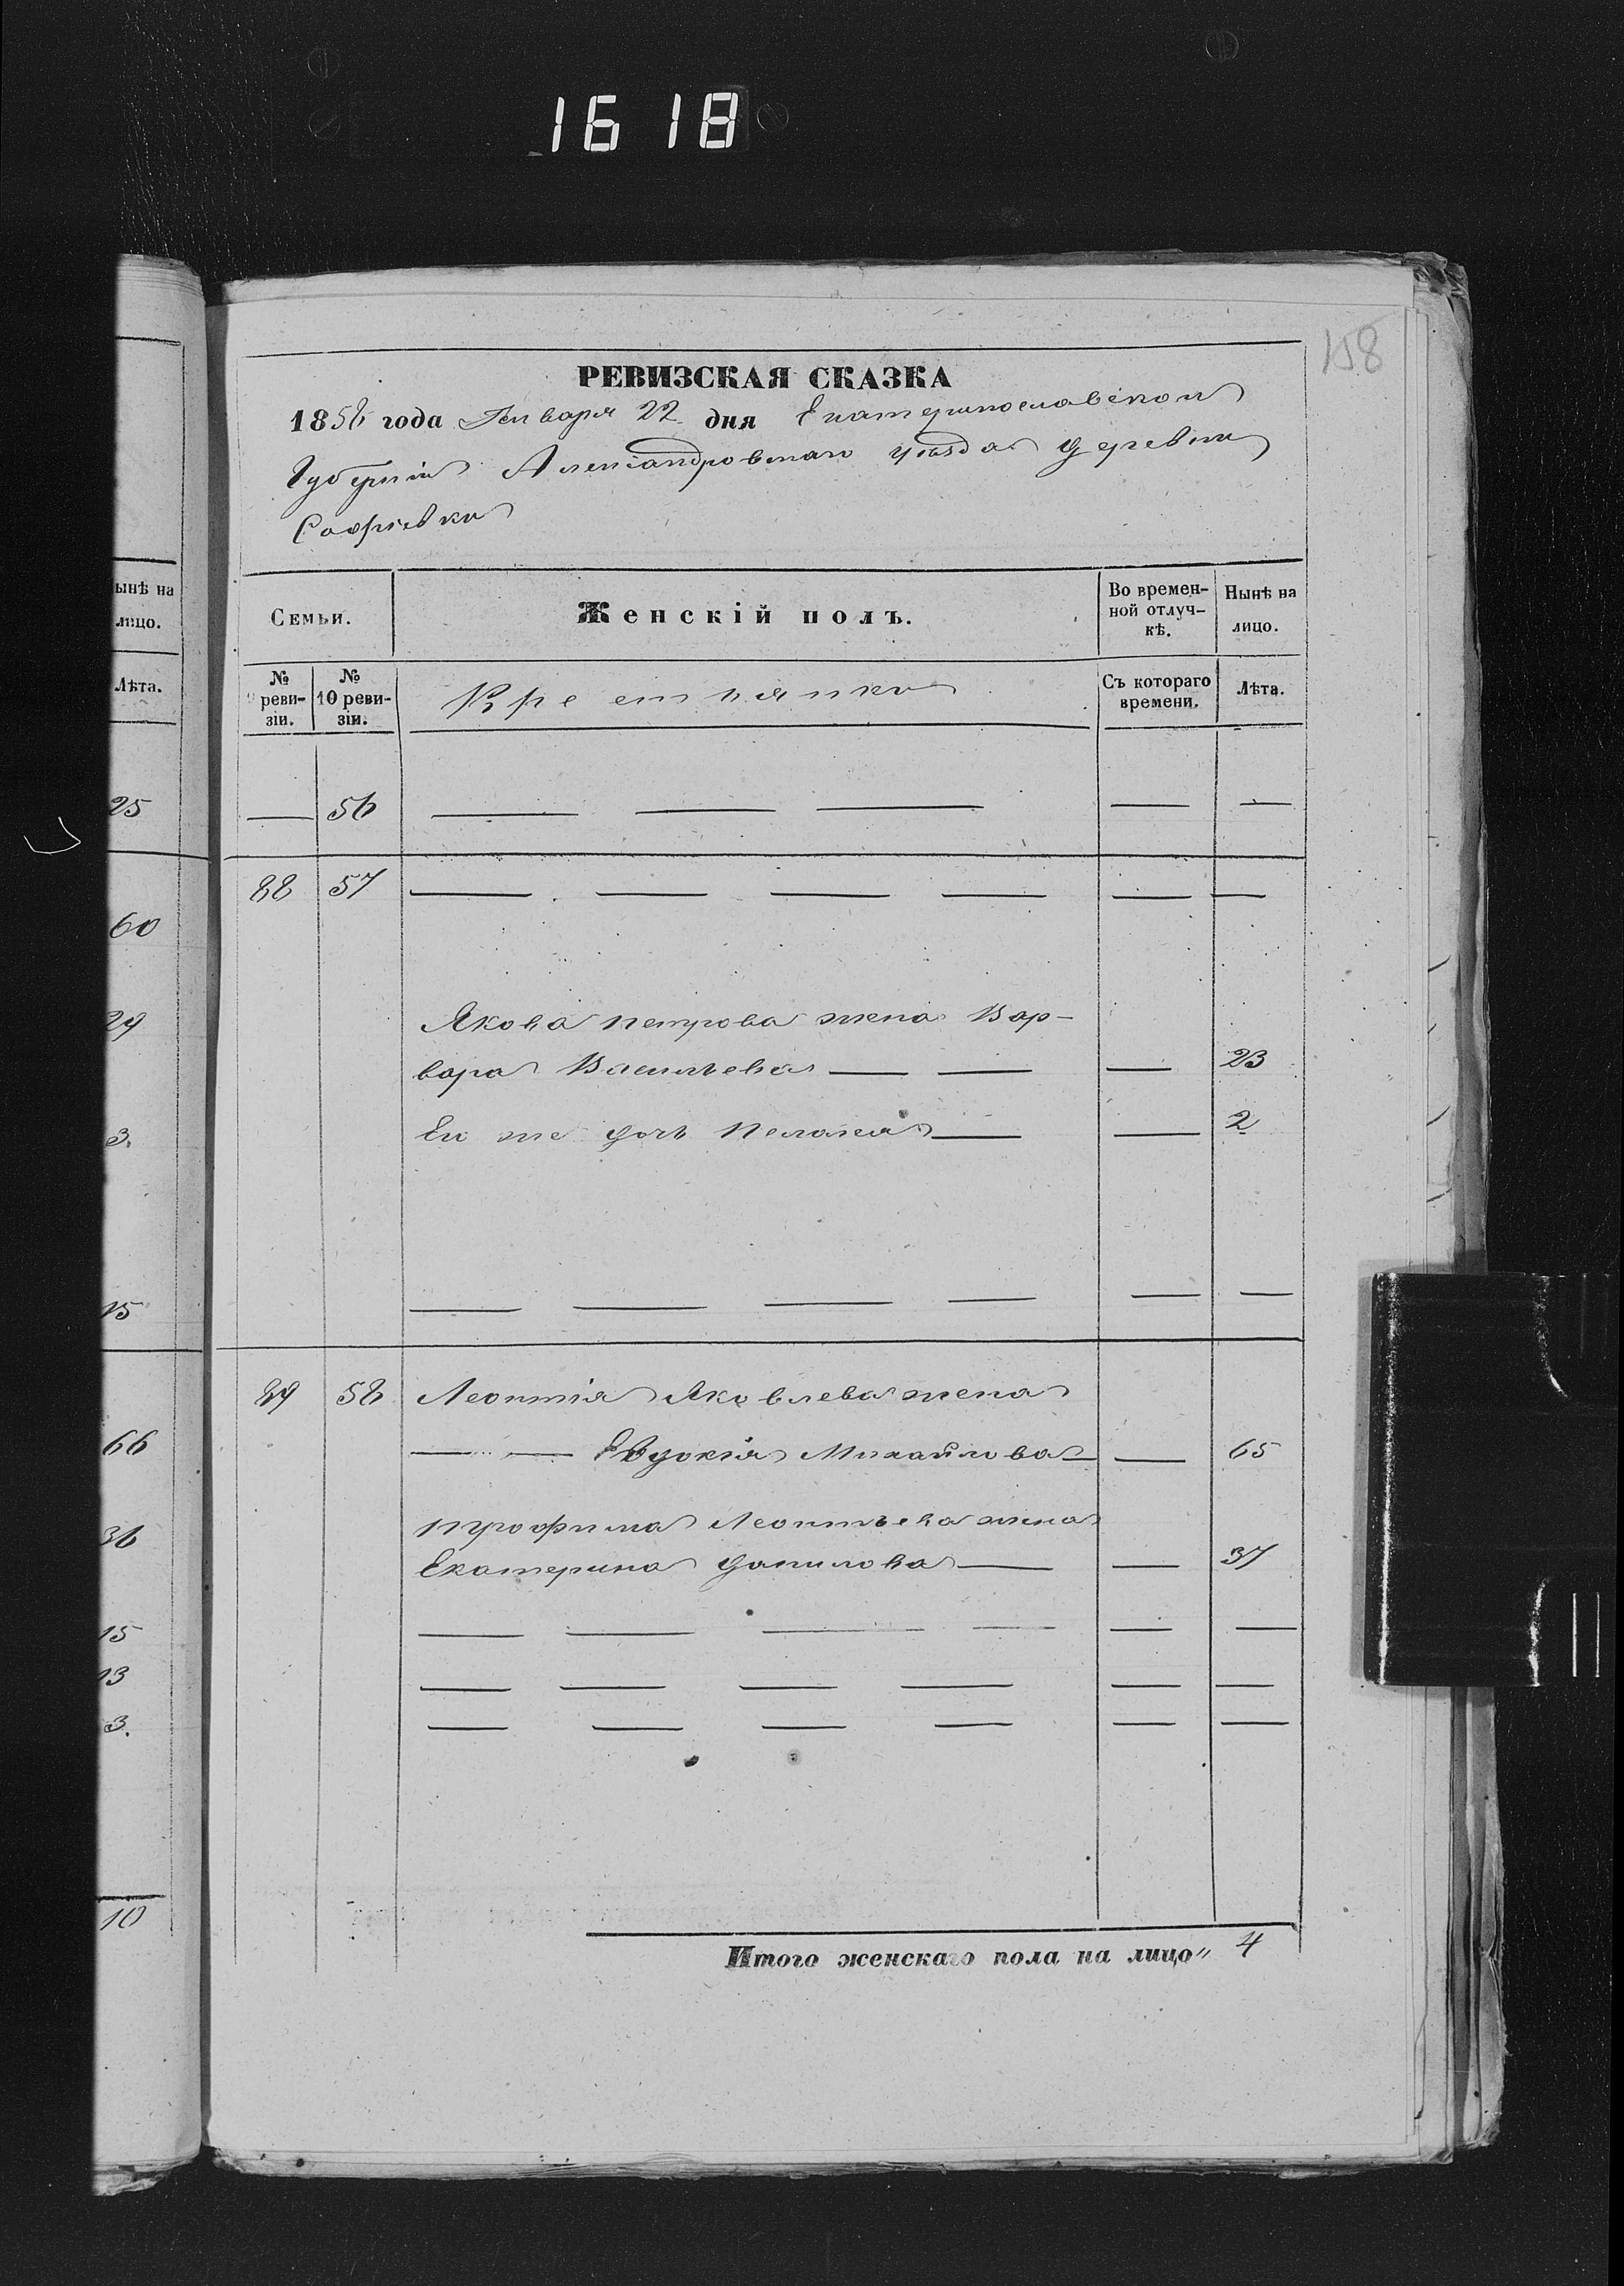 1618
158
РЕВИЗСКАЯ СКАЗКА
1858 года Января 22 дня Екатеринославской
Губерніи Александровскаго уѣзда деревни
Софіевки
Семьи.
Женскій полъ.
Во времен-
ной отлуч-
кѣ.
Нынѣ на
лицо.
№
9 реви-
зіи.
№
10 реви-
зіи.
Крестьянки
Съ котораго
времени.
Лѣта.
— 56 — — — — —
88 57 — — — — — —
Якова Петрова жена Вар-
вара Васильева — — — 23
Ея же дочь Пелагея — — 2
— — — — — —
89 58 Леонтія Яковлева жена
— — Евдокія Михайлова — — 65
Трофима Леонтьева жена
Екатерина Данилова — — 37
— — — — — —
— — — — — —
— — — — — —
Итого женскаго пола на лицо „ 4
ынѣ на
лицо.
Лѣта.
25
60
29
3.
15
66
36
15
13
3.
10